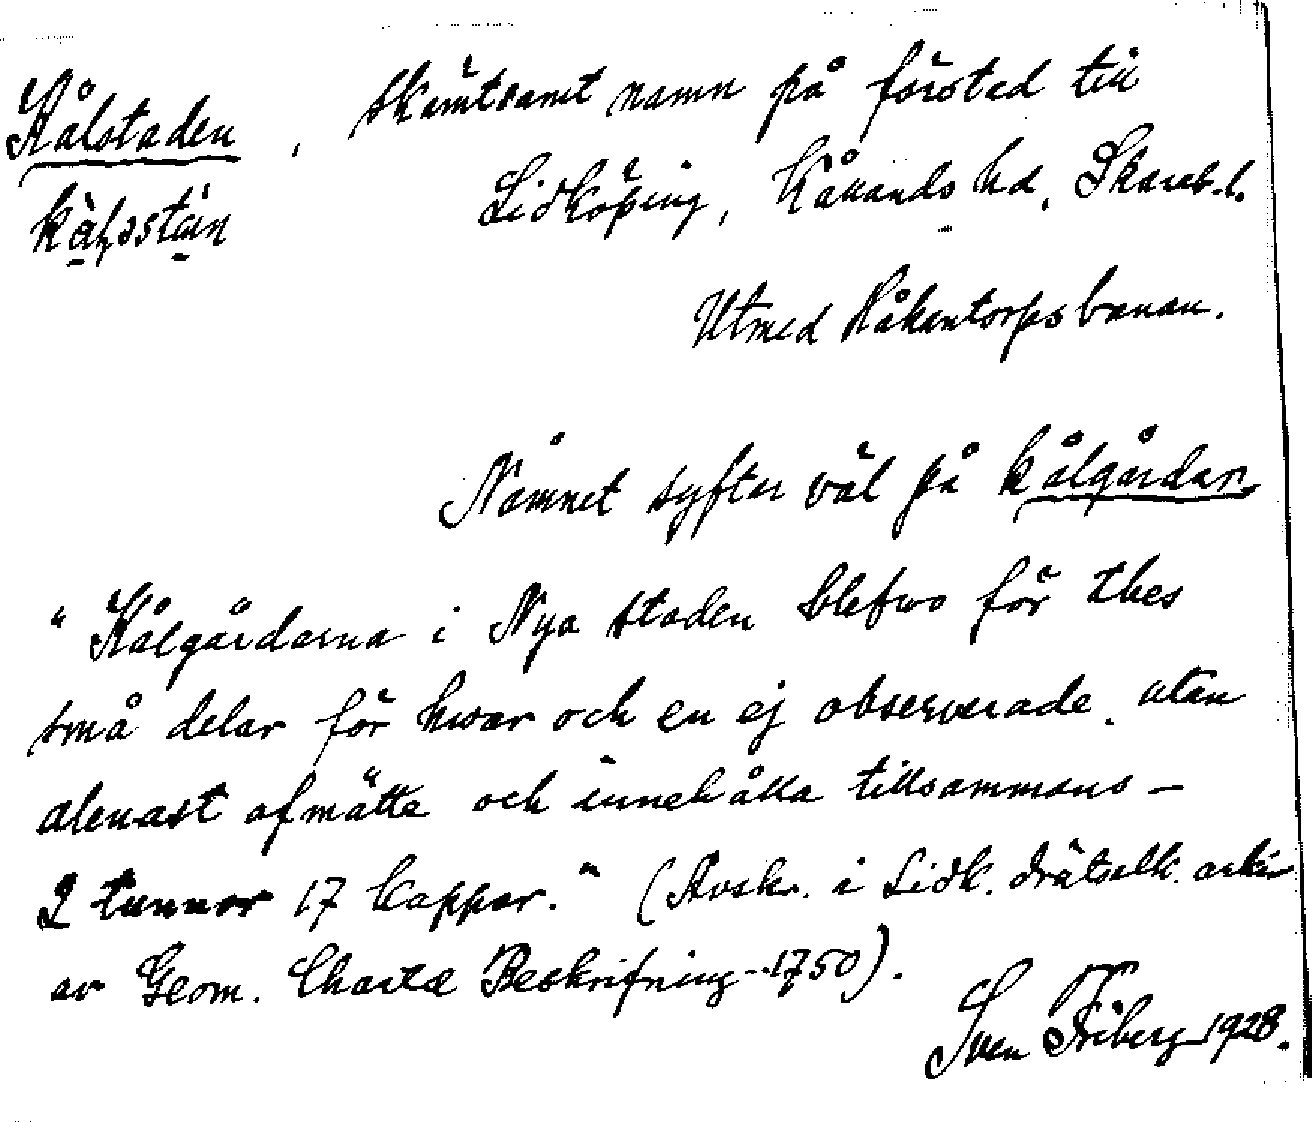 Kålstaden, skämtsamt namn på förstad till
Lidköping, Kållands hd, Skarab. l.
Utmed Håkantorpsbanan.
Namnet syftar väl på kålgårdar.
"Kålgårdarna i Nya staden blefwo för thes
små delar för hwar och en ej observerade, utan
alenast afmätte och innehålla tillsammans –
2 tunnor 17 kappar." (Avskr. i Lidk. drätselk. arkiv
av Geom. Charta Beskrifning 1750).
Sven Friberg 1928.